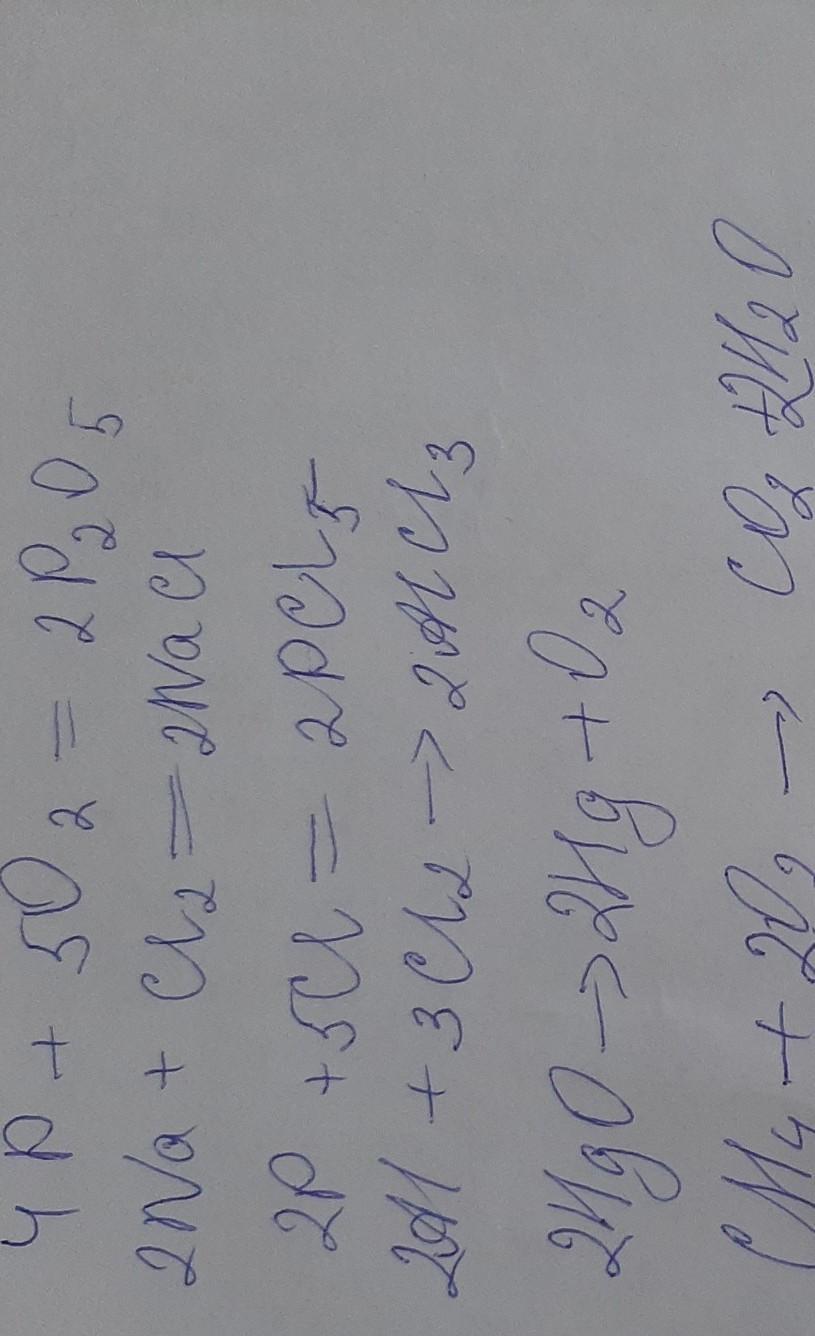 4P + 5O2 = 2P2O5
2Na + Cl2 = 2NaCl
2P + 5Cl = 2PCl5
2Al + 3Cl2 → 2AlCl3
2HgO → 2Hg + O2
CH4 + 2O2 → CO2 + 2H2O